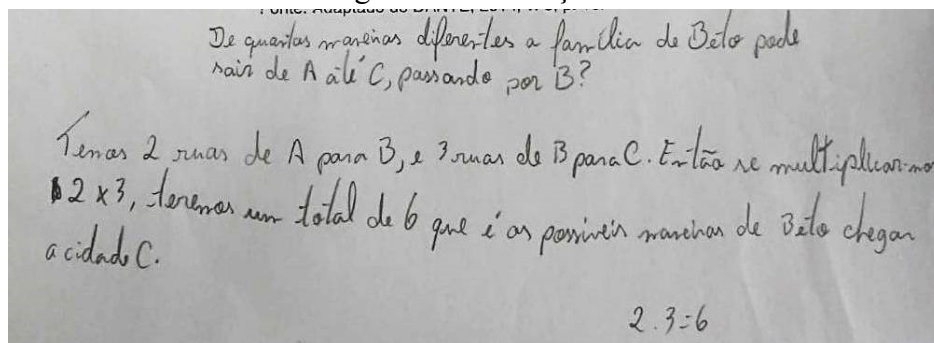 De quantas maneiras diferentes a família de Beto pode
sair de A até C, passando por B?
Temos 2 ruas de A para B, e 3 ruas de B para C. Então se multiplicarmo
2 x 3, teremos um total de 6 que é as possíveis maneiras de Beto chegar
a cidade C.
2.3=6